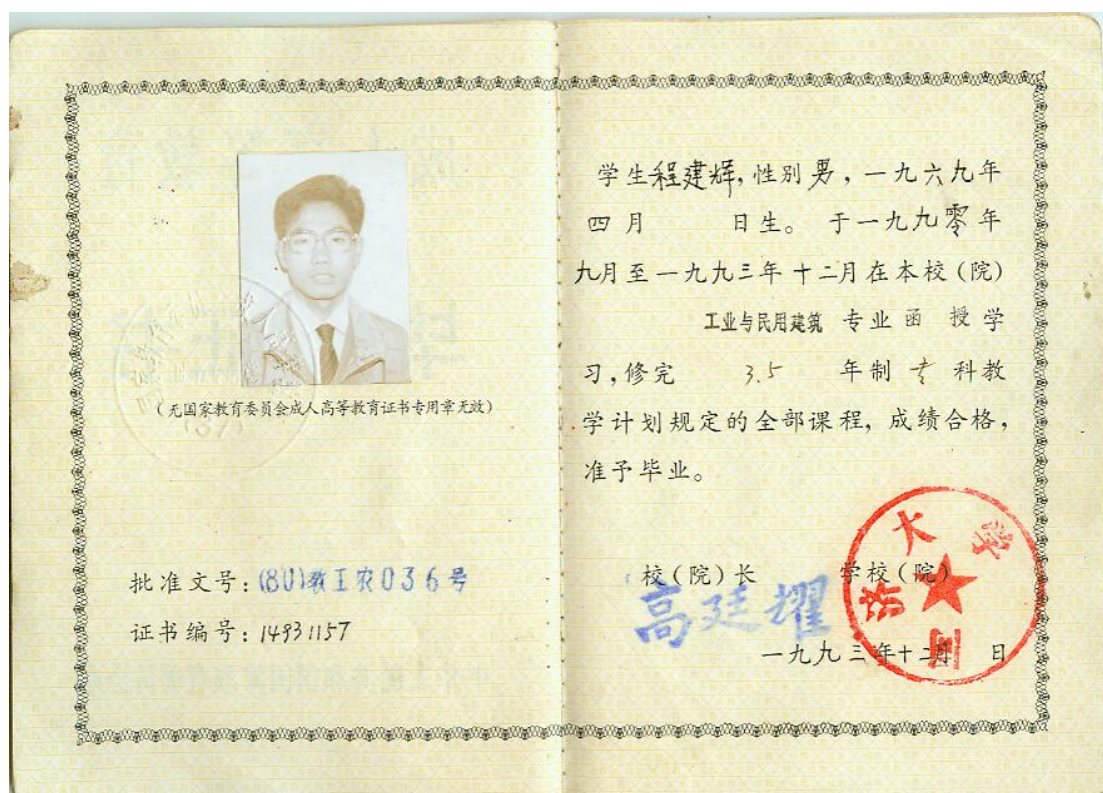 (无国家教育委员会成人高等教育证书专用章无效)
批准文号:(80)教工农036号
证书编号:14931157
学生程建辉,性别男,一九六九年
四月 日生。于一九九零年
九月至一九九三年十二月在本校(院)
工业与民用建筑 专业函授学
习,修完 3.5 年制专科教
学计划规定的全部课程,成绩合格,
准予毕业。
校(院)长 学校(院)
高廷耀
一九九三年十二月 日
同济大学